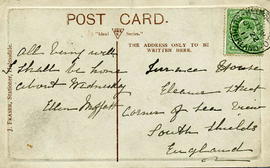 POST CARD.
"Ideal" Series.
THE ADDRESS ONLY TO BE
WRITTEN HERE.
J. FRASER, Stationer,
All being well
shall be home
about Wednesday
Moffatt
House
Eleanor Street
Corner of Sea View
South Shields
England